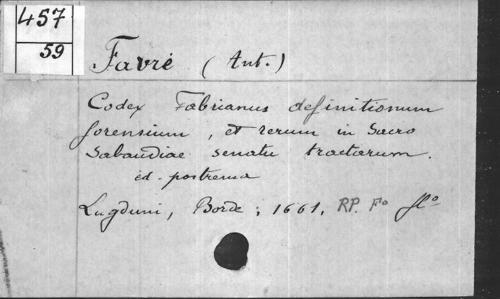 457
59
Favré (Ant.)
Codex Fabrianus definitionum
forensium, et rerum in Sacro
Sabaudiae senatu tractarum.
ed. postrema
Lugduni, Borde; 1661, RP. Fo